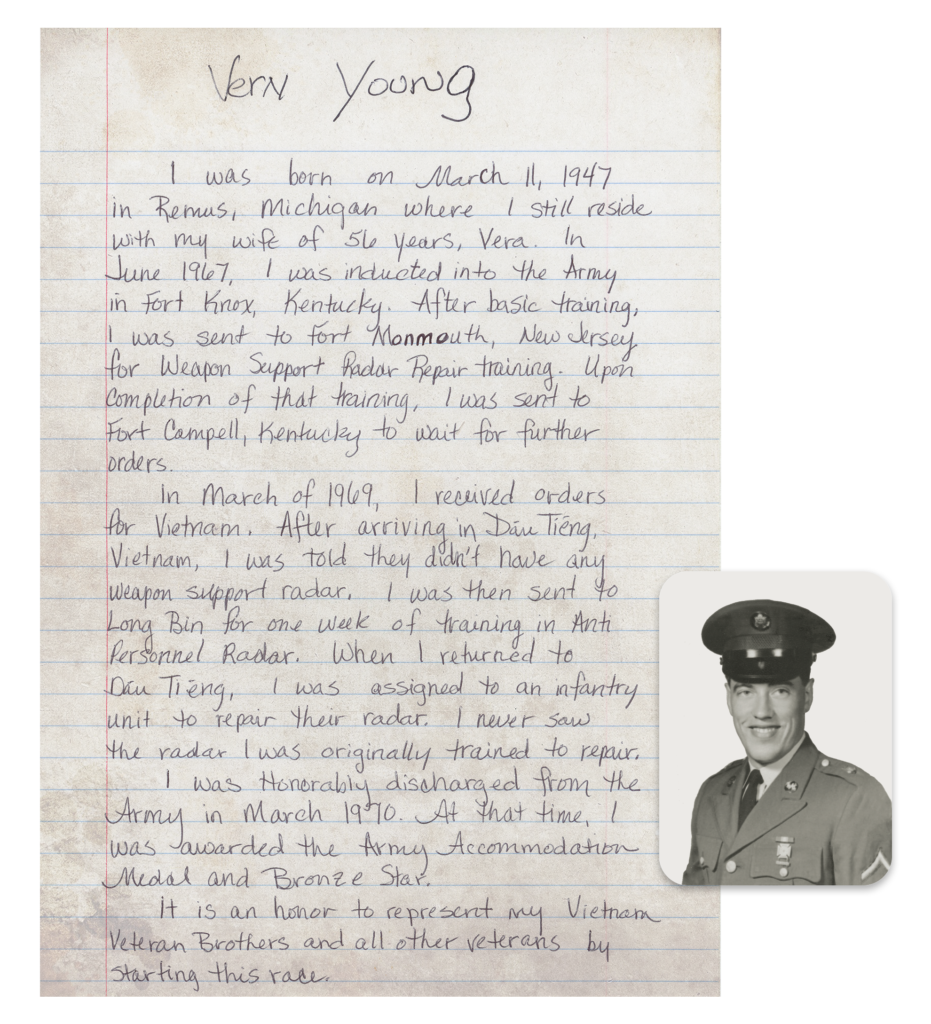 Vern Young
I was born on March 11, 1947
in Remus, Michigan where I still reside
with my wife of 56 years, Vera. In
June 1967, I was inducted into the Army
in Fort Knox, Kentucky. After basic training,
I was sent to Fort Monmouth, New Jersey
for Weapon Support Radar Repair training. Upon
completion of that training, I was sent to
Fort Campell, Kentucky to wait for further
orders.
In March of 1969, I received orders
for Vietnam. After arriving in Dáu Tiéng,
Vietnam, I was told they didn't have any
weapon support radar. I was then sent to
Long Bin for one week of training in Anti
Personnel Radar. When I returned to
Dáu Tiéng, I was assigned to an infantry
unit to repair their radar. I never saw
the radar I was originally trained to repair.
I was Honorably discharged from the
Army in March 1970. At that time, I
was awarded the Army Accommodation
Medal and Bronze Star.
It is an honor to represent my Vietnam
Veteran Brothers and all other veterans by
starting this race.